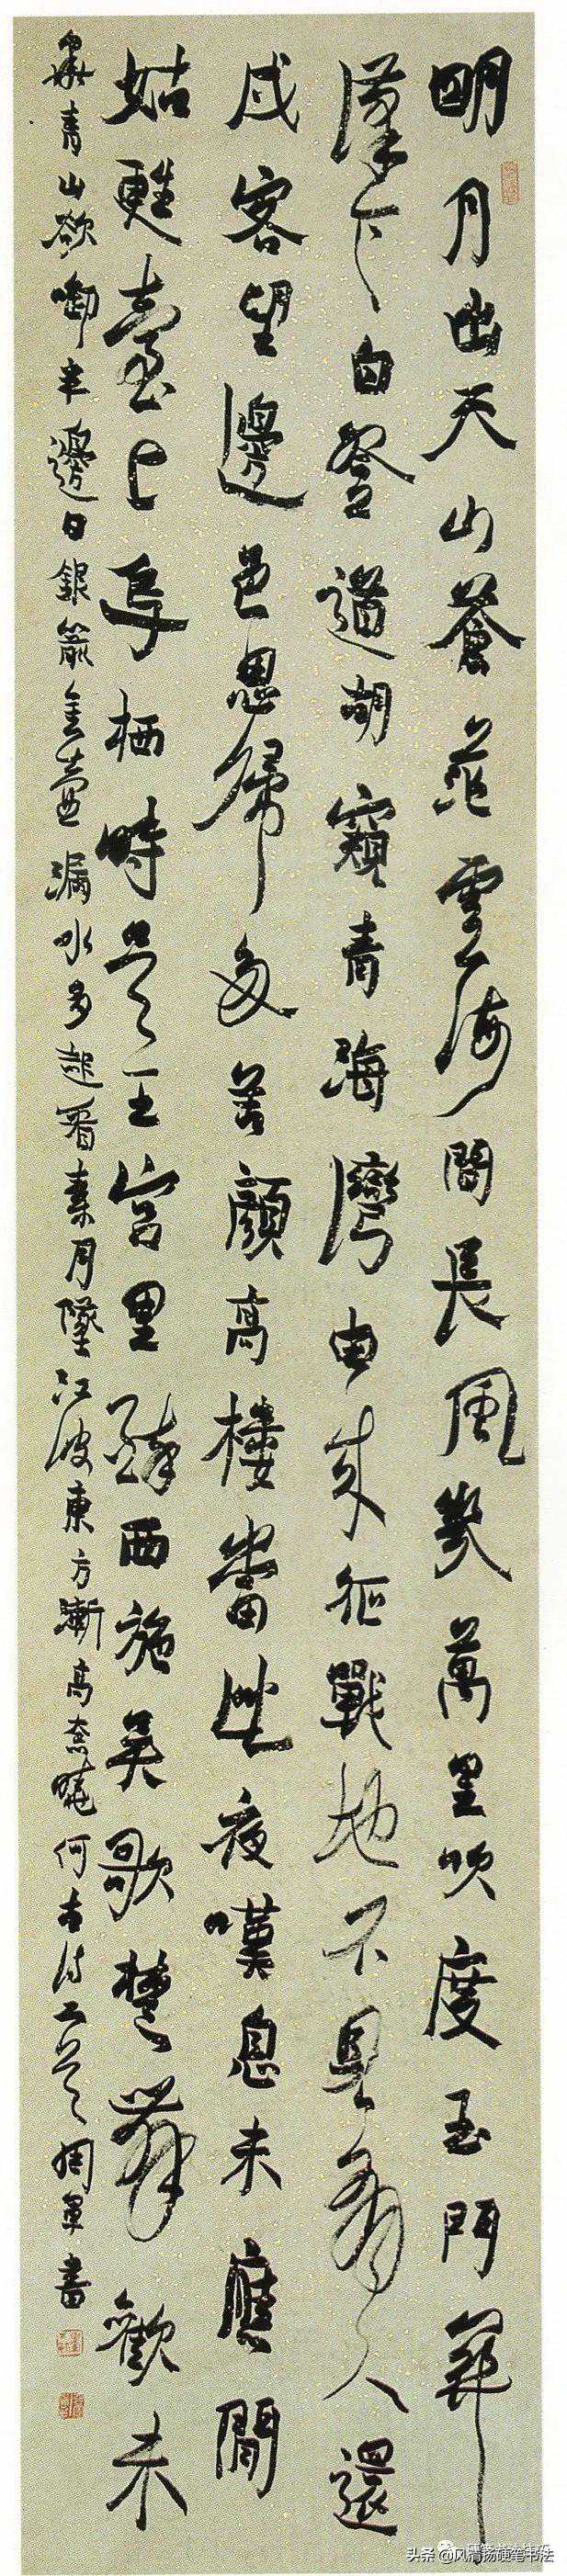 明月出天山蒼茫雲海間長風幾萬里吹度玉門關
漢下白登道胡窺青海灣由來征戰地不見有人還
戍客望邊邑思歸多苦顏高樓當此夜嘆息未應閒
姑甦臺上烏栖時吳王宮里醉西施吳歌楚舞歡未
畢青山欲啣半邊日銀箭金壺漏水多起看秋月墜江波東方漸高奈曉何古詩二首周軍書
头条 @风清扬硬笔书法